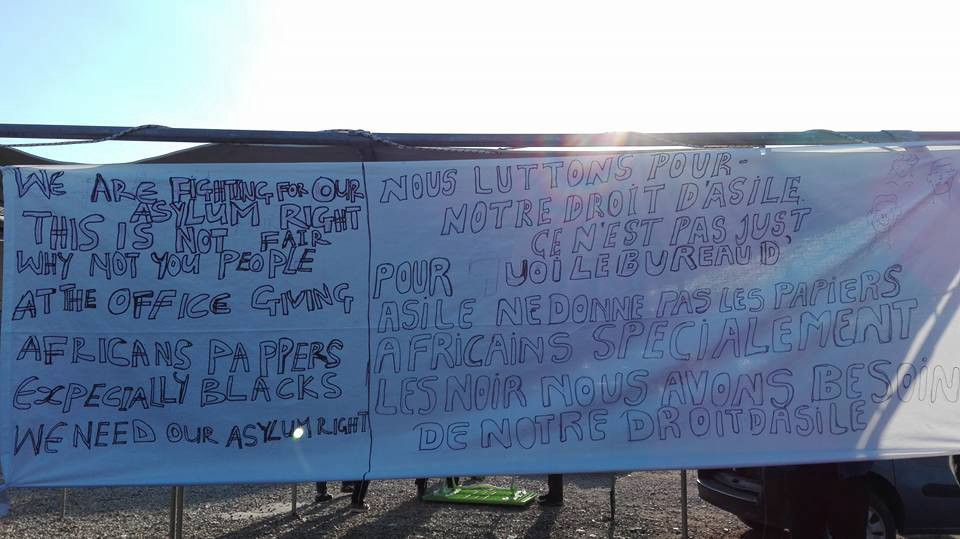 WE ARE FIGHTING FOR OUR
ASYLUM RIGHT
THIS IS NOT FAIR
WHY NOT YOU PEOPLE
AT THE OFFICE GIVING
AFRICANS PAPPERS
EXPECIALLY BLACKS
WE NEED OUR ASYLUM RIGHT
NOUS LUTTONS POUR-
NOTRE DROIT D'ASILE
ÇE N'EST PAS JUST
POUR UOI LE BUREAU D'
ASILE NE DONNE PAS LES PAPIERS
AFRICAINS SPECIALEMENT
LES NOIR NOUS AVONS BESOIN
DE NOTRE DROIT DASILE